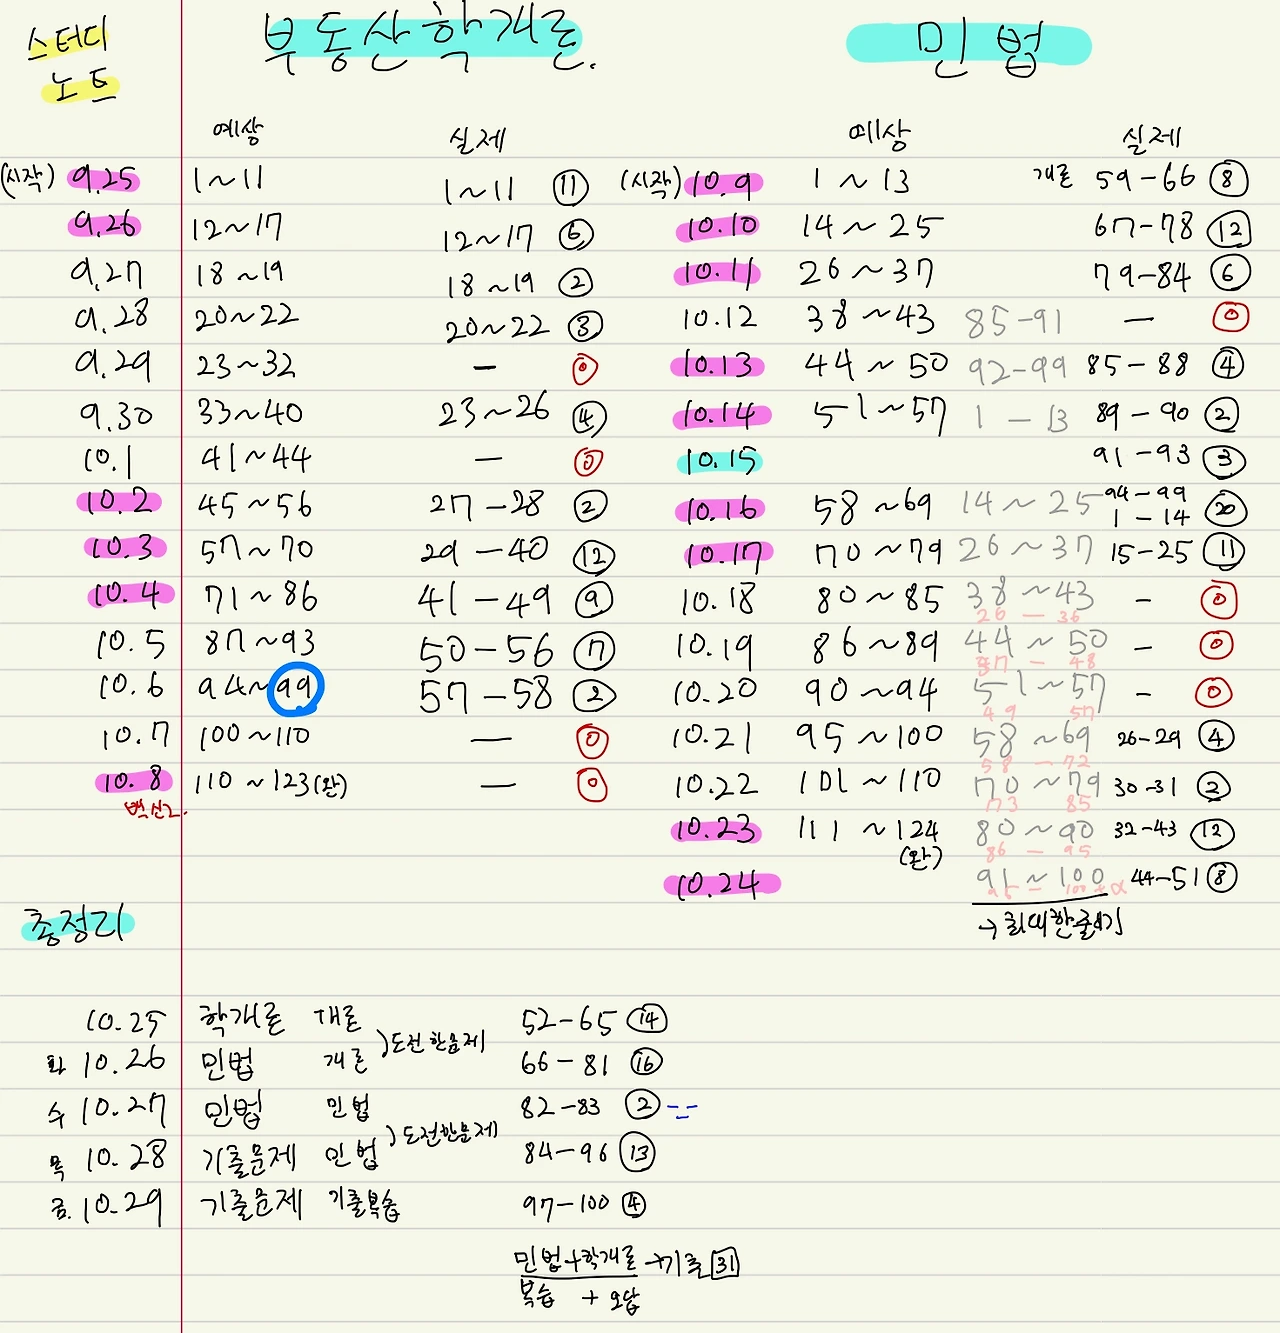 스터디 노트
부동산학개론.
민법
예상 실제 예상 실제
(시작) 9.25 1~11 1~11 ⑪ (시작) 10.9 1~13 개론 59-66 ⑧
9.26 12~17 12~17 ⑥ 10.10 14~25 67-78 ⑫
9.27 18~19 18~19 ② 10.11 26~37 79-84 ⑥
9.28 20~22 20~22 ③ 10.12 38~43 85-91 — ⓪
9.29 23~32 — ⓪ 10.13 44~50 92-99 85-88 ④
9.30 33~40 23~26 ④ 10.14 51~57 1-13 89-90 ②
10.1 41~44 — ⓪ 10.15 91-93 ③
10.2 45~56 27-28 ② 10.16 58~69 14~25 94-99 1-14 ⑳
10.3 57~70 29-40 ⑫ 10.17 70~79 26~37 15-25 ⑪
10.4 71~86 41-49 ⑨ 10.18 80~85 38~43 26-36 — ⓪
10.5 87~93 50-56 ⑦ 10.19 86~89 44~50 37-48 — ⓪
10.6 94~99 57-58 ② 10.20 90~94 51~57 49 57 — ⓪
10.7 100~110 — ⓪ 10.21 95~100 58~69 58-72 26-29 ④
10.8 110~123(완) — ⓪ 10.22 101~110 70~79 73 85 30-31 ②
백신2. 10.23 111~124 (완) 80~90 86-95 32-43 ⑫
10.24 91~100 95-100+α 44-51 ⑧
→ 최대한줄이기
총정리
10.25 학개론 개론 52-65 ⑭
)도전한문제
화 10.26 민법 개론 66-81 ⑯
수 10.27 민법 민법 82-83 ② --
)도전한문제
목 10.28 기출문제 민법 84-96 ⑬
금. 10.29 기출문제 기출복습 97-100 ④
민법+학개론 →기출 31
복습 + 오답